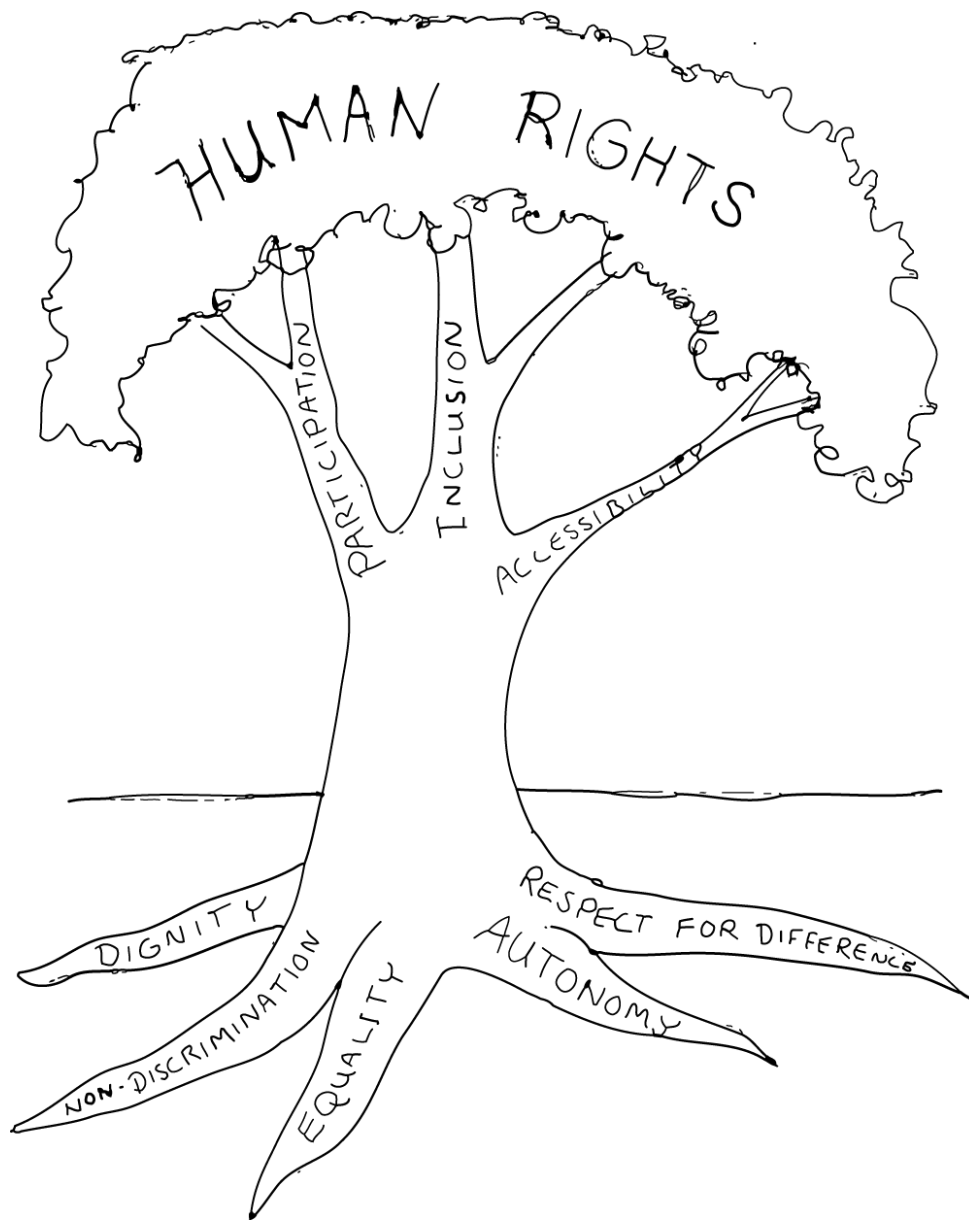 HUMAN RIGHTS
PARTICIPATION
INCLUSION
ACCESSIBILITY
DIGNITY
NON-DISCRIMINATION
EQUALITY
AUTONOMY
RESPECT FOR DIFFERENCE